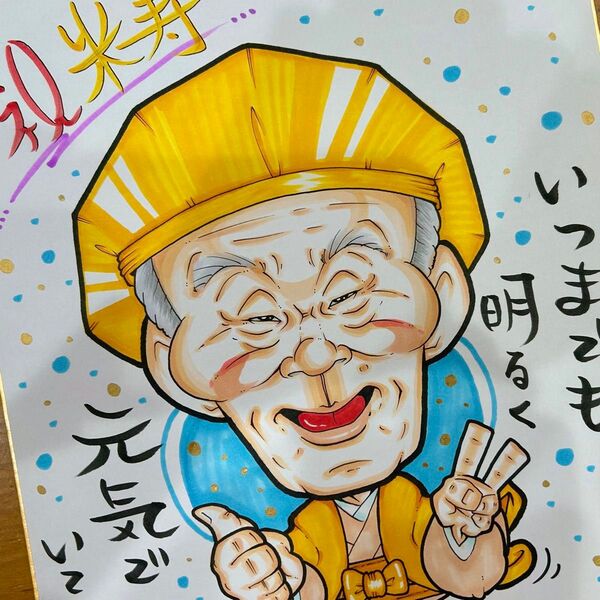 祝米寿
いつまでも
明るく
元気で
いて